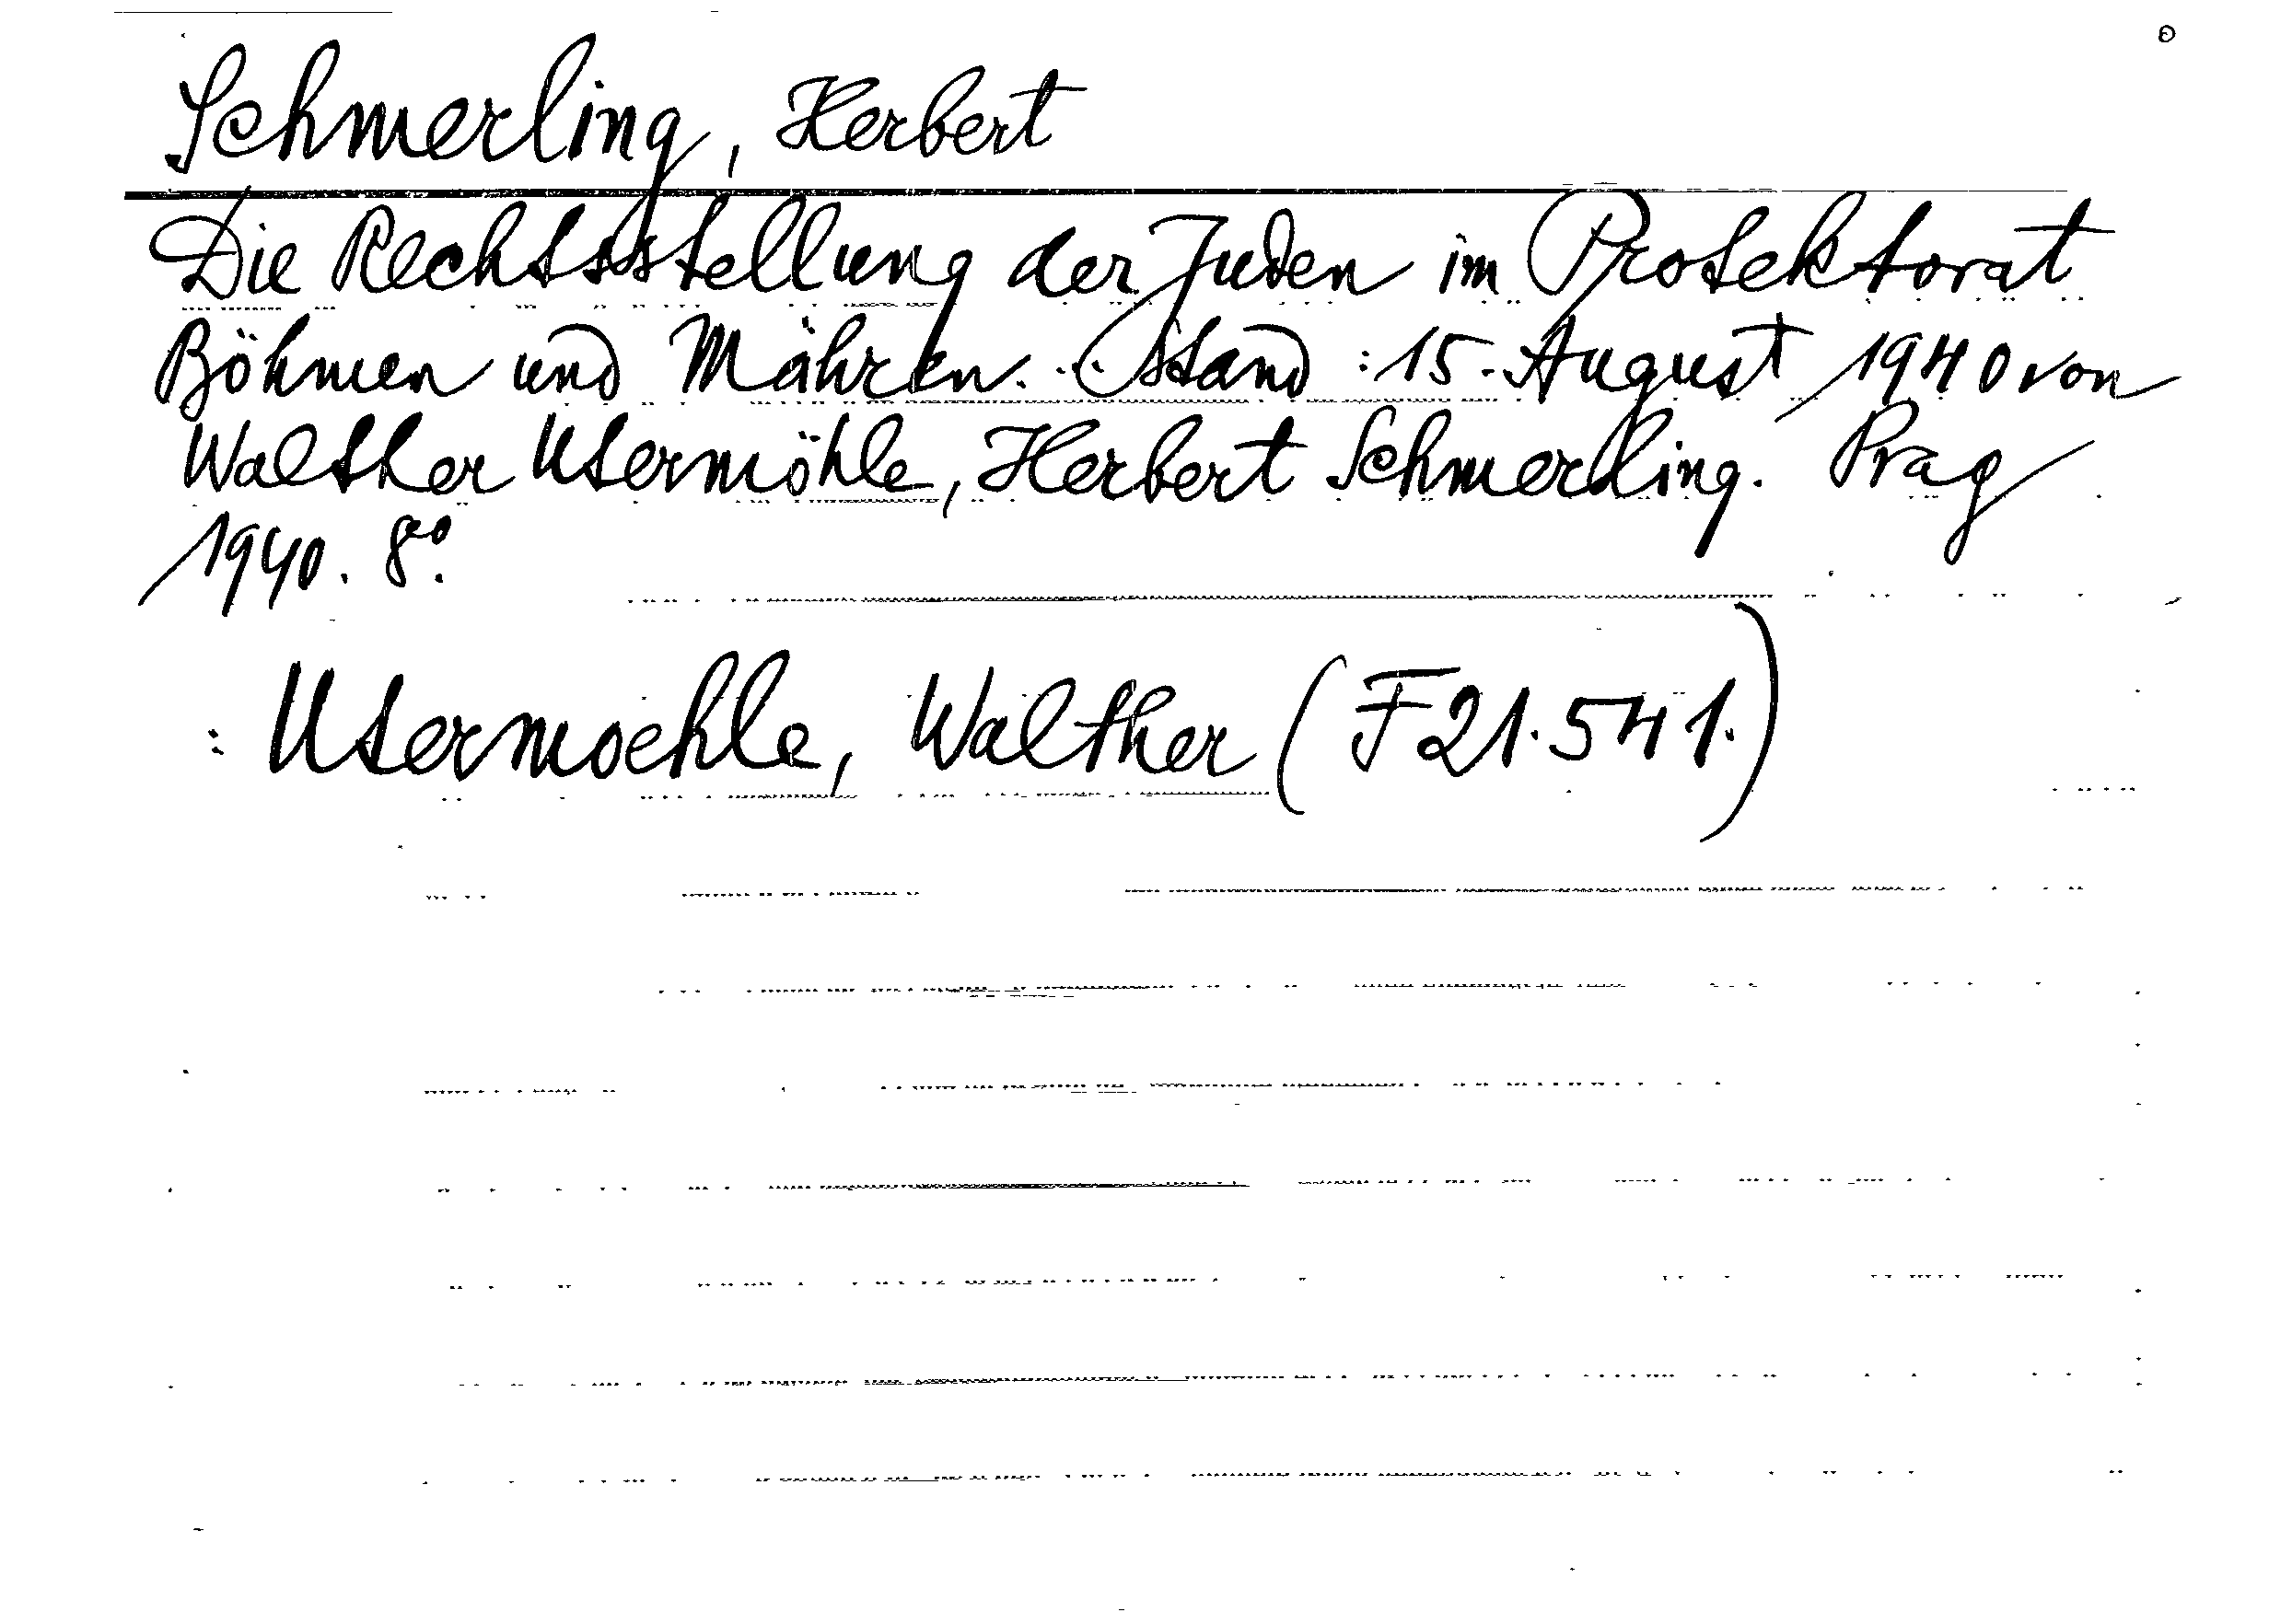 Schmerling, Herbert
Die Rechtsstellung der Juden im Protektorat
Böhmen und Mähren... Stand: 15. August 1940 von
Walther Utermöhle, Herbert Schmerling. Prag
1940. 8°.
: Utermoehle, Walther (F 21.541.)